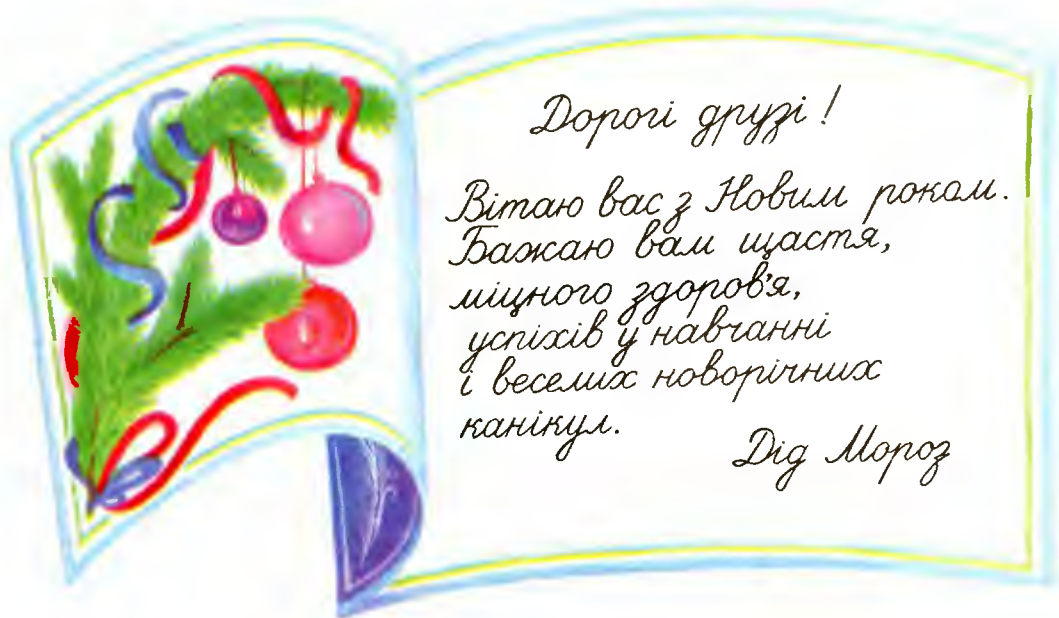 Дорогі друзі!
Вітаю вас з Новим роком.
Бажаю вам щастя,
міцного здоров'я,
успіхів у навчанні
і веселих новорічних
канікул.
Дід Мороз